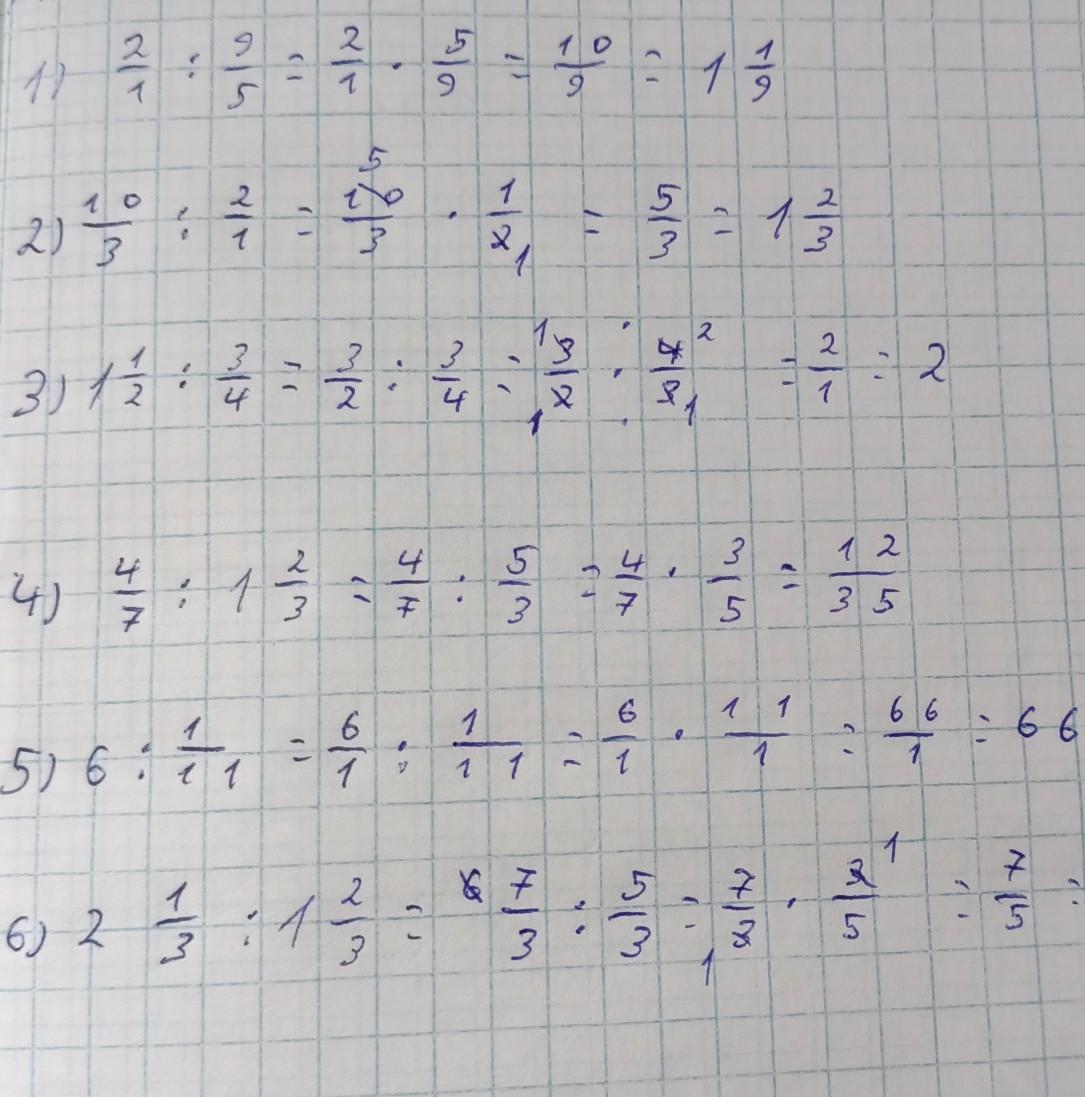 1) 2/1 : 9/5 = 2/1 · 5/9 = 10/9 = 1 1/9
2) 10/3 : 2/1 = 10/3 5 · 1/2 1 = 5/3 = 1 2/3
3) 1 1/2 : 3/4 = 3/2 : 3/4 = 1 3/2 1 · 4/3 2 1 = 2/1 = 2
4) 4/7 : 1 2/3 = 4/7 : 5/3 = 4/7 · 3/5 = 12/35
5) 6 : 1/11 = 6/1 : 1/11 = 6/1 · 11/1 = 66/1 = 66
6) 2 1/3 : 1 2/3 = 7/3 : 5/3 = 7/3 1 · 3/5 1 = 7/5 =